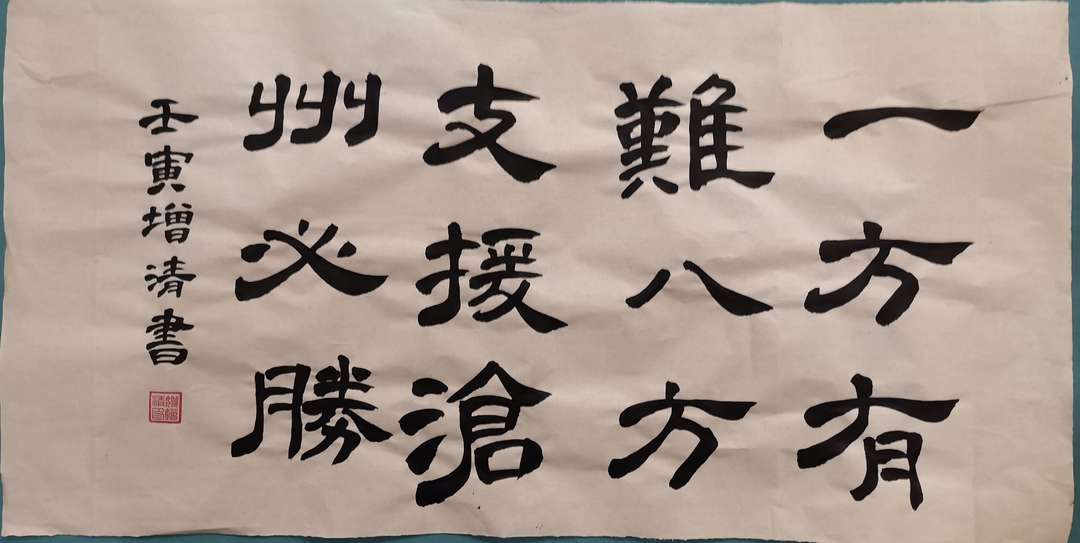 一方有
難八方
支援滄
州必勝
壬寅增清書